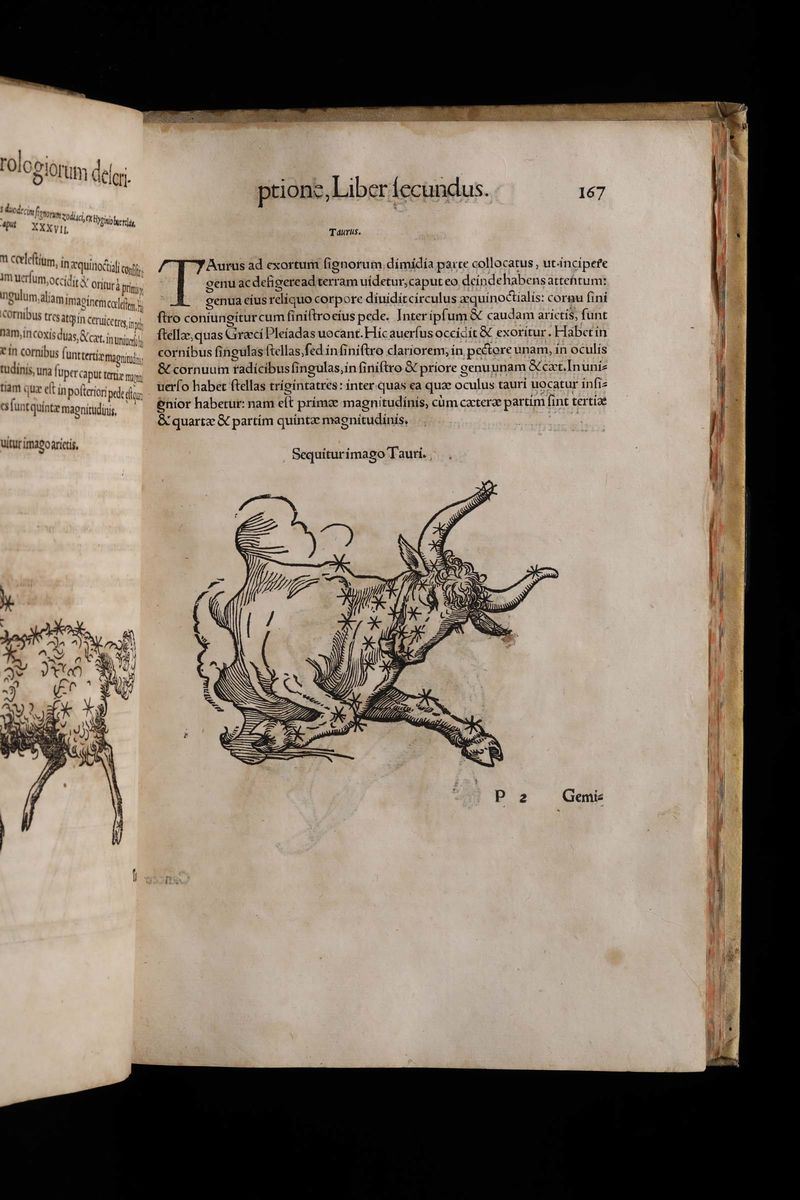 rologiorum descri-
s duodecim signorum zodiaci, ex Hyginio
Caput XXXVII.
m cœlestium, in æquinoctiali
um uersum, occidit & oritur à
ngulum, aliam imaginem
cornibus tres atq; in ceruice tres,
nam, in coxis duas, & cæt. in
æ in cornibus sunt tertiæ
tudinis, una super caput tertiæ
tiam quæ est in posteriori pede
es sunt quintæ magnitudinis.
uitur imago arietis.
ptione, Liber secundus. 167
Taurus.
TAurus ad exortum signorum dimidia parte collocatus, ut incipere
genu ac defigere ad terram uidetur, caput eo deinde habens attentum:
genua eius reliquo corpore diuidit circulus æquinoctialis: cornu sini
stro coniungitur cum sinistro eius pede. Inter ipsum & caudam arietis, sunt
stellæ, quas Græci Pleiadas uocant. Hic auersus occidit & exoritur. Habet in
cornibus singulas stellas, sed in sinistro clariorem, in pectore unam, in oculis
& cornuum radicibus singulas, in sinistro & priore genu unam & cæt. In uni-
uerso habet stellas triginta tres: inter quas ea quæ oculus tauri uocatur insi-
gnior habetur: nam est primæ magnitudinis, cùm cæteræ partim sint tertiæ
& quartæ & partim quintæ magnitudinis.
Sequitur imago Tauri.
P 2 Gemi-